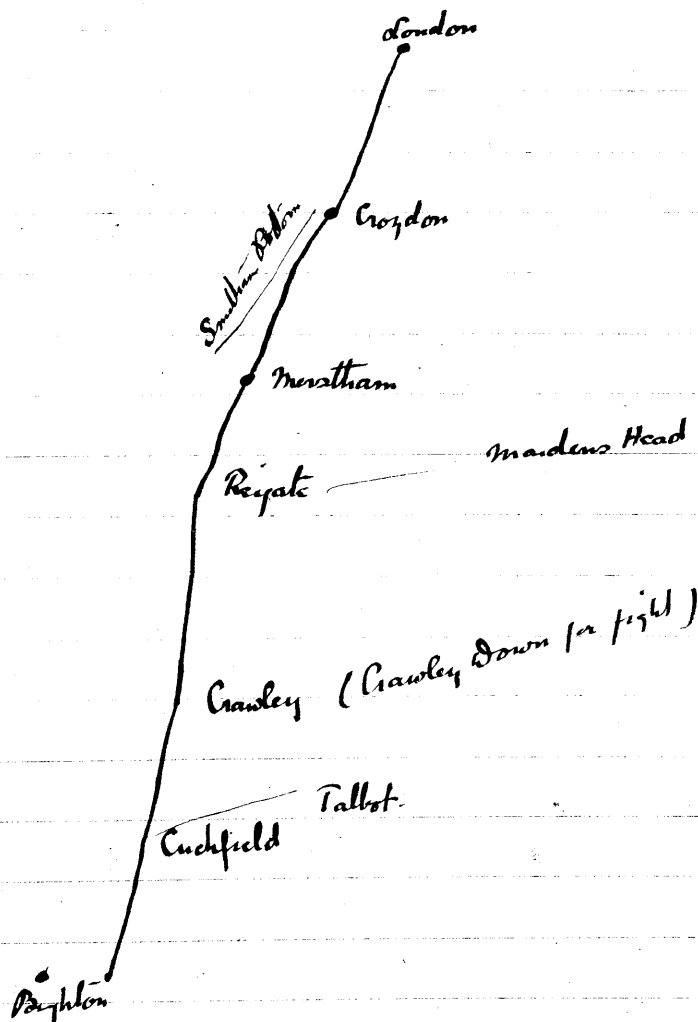 London
Croydon
Smitham Bottom
Merstham
Maidens Head
Reigate
Crawley (Crawley Down for fight)
Talbot.
Cuckfield
Brighton